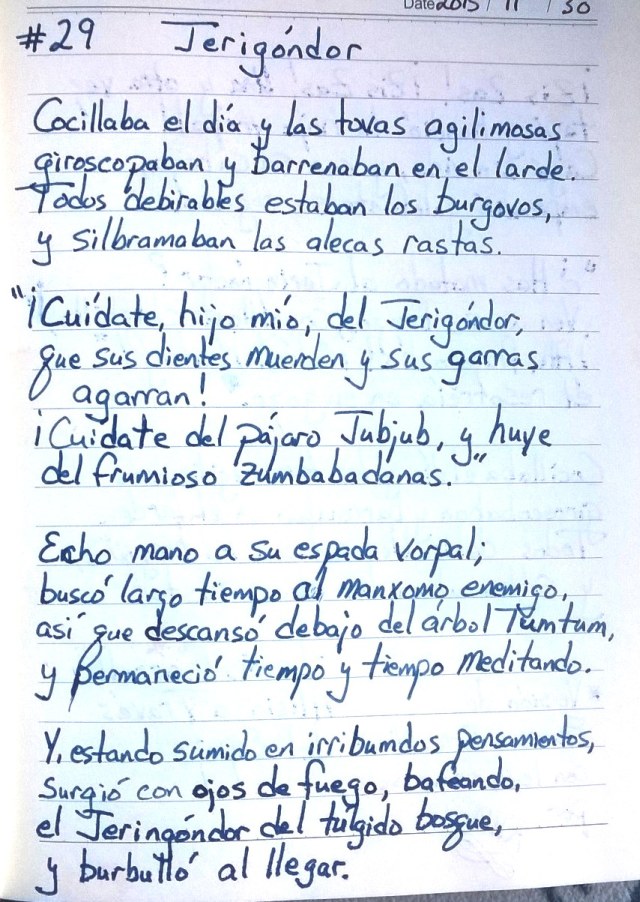 Date 2015 / 11 / 30
#29 Jerigóndor
Cocillaba el día y las tovas agilimosas
giroscopaban y barrenaban en el larde.
Todos debirables estaban los burgovos,
y silbramaban las alecas rastas.
"¡Cuídate, hijo mío, del Jerigóndor,
que sus dientes muerden y sus garras
agarran!
¡Cuídate del pájaro Jubjub, y huye
del frumioso zumbabadanas."
Echo mano a su espada vorpal;
buscó largo tiempo al manxomo enemigo,
así que descansó debajo del árbol Tumtum,
y permaneció tiempo y tiempo meditando.
Y, estando sumido en irribumdos pensamientos,
surgió con ojos de fuego, bafeando,
el Jeringóndor del túlgido bosque,
y burbulló al llegar.